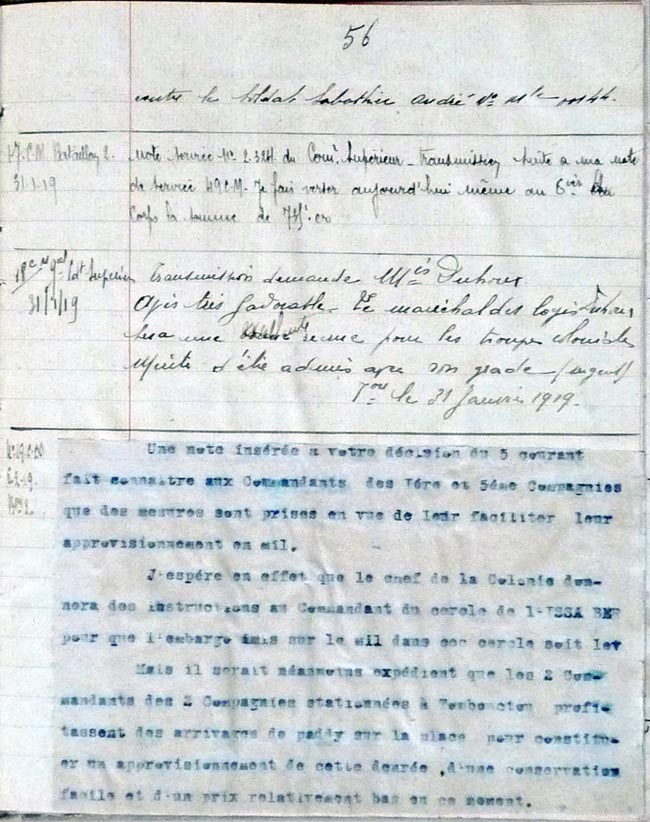 56
contre le Soldat Sabathier André No Mle 00144.
47. C.M. Bataillon 2.
31.1.19
Note service No 2.324 du Comt Supérieur - Transmission suite a ma note
de service 49 C.M. Je fais verser aujourd'hui même au
Corps la somme de
31/1/19
Transmission demande Mis Duhoux
Avis très favorable - Le maréchal des logis Duhoux
sera une excellente recrue pour les troupes coloniales
Mérite d'être admis avec son grade (urgent)
le 31 Janvier 1919.
6-2-19.
Une note insérée a votre décision du 5 courant
fait connaître aux Commandants des Iére et 5éme Compagnies
que des mesures sont prises en vue de leur faciliter leur
approvisionnement en mil.
J'espére en effet que le chef de la Colonie don-
nera des instructions au Commandant du cercle de l'ISSA BER
pour que l'embargo imis sur le mil dans cec cercle soit lev
Mais il serait néanmoins expédient que les 2 Com-
mandants des 2 Compagnies stationnées à Tombouctou profi-
tassent des arrivages de paddy sur la place pour constitu-
er un approvisionnement de cette denrée ,d'une conservation
facile et d'un prix relativement bas en ce moment.